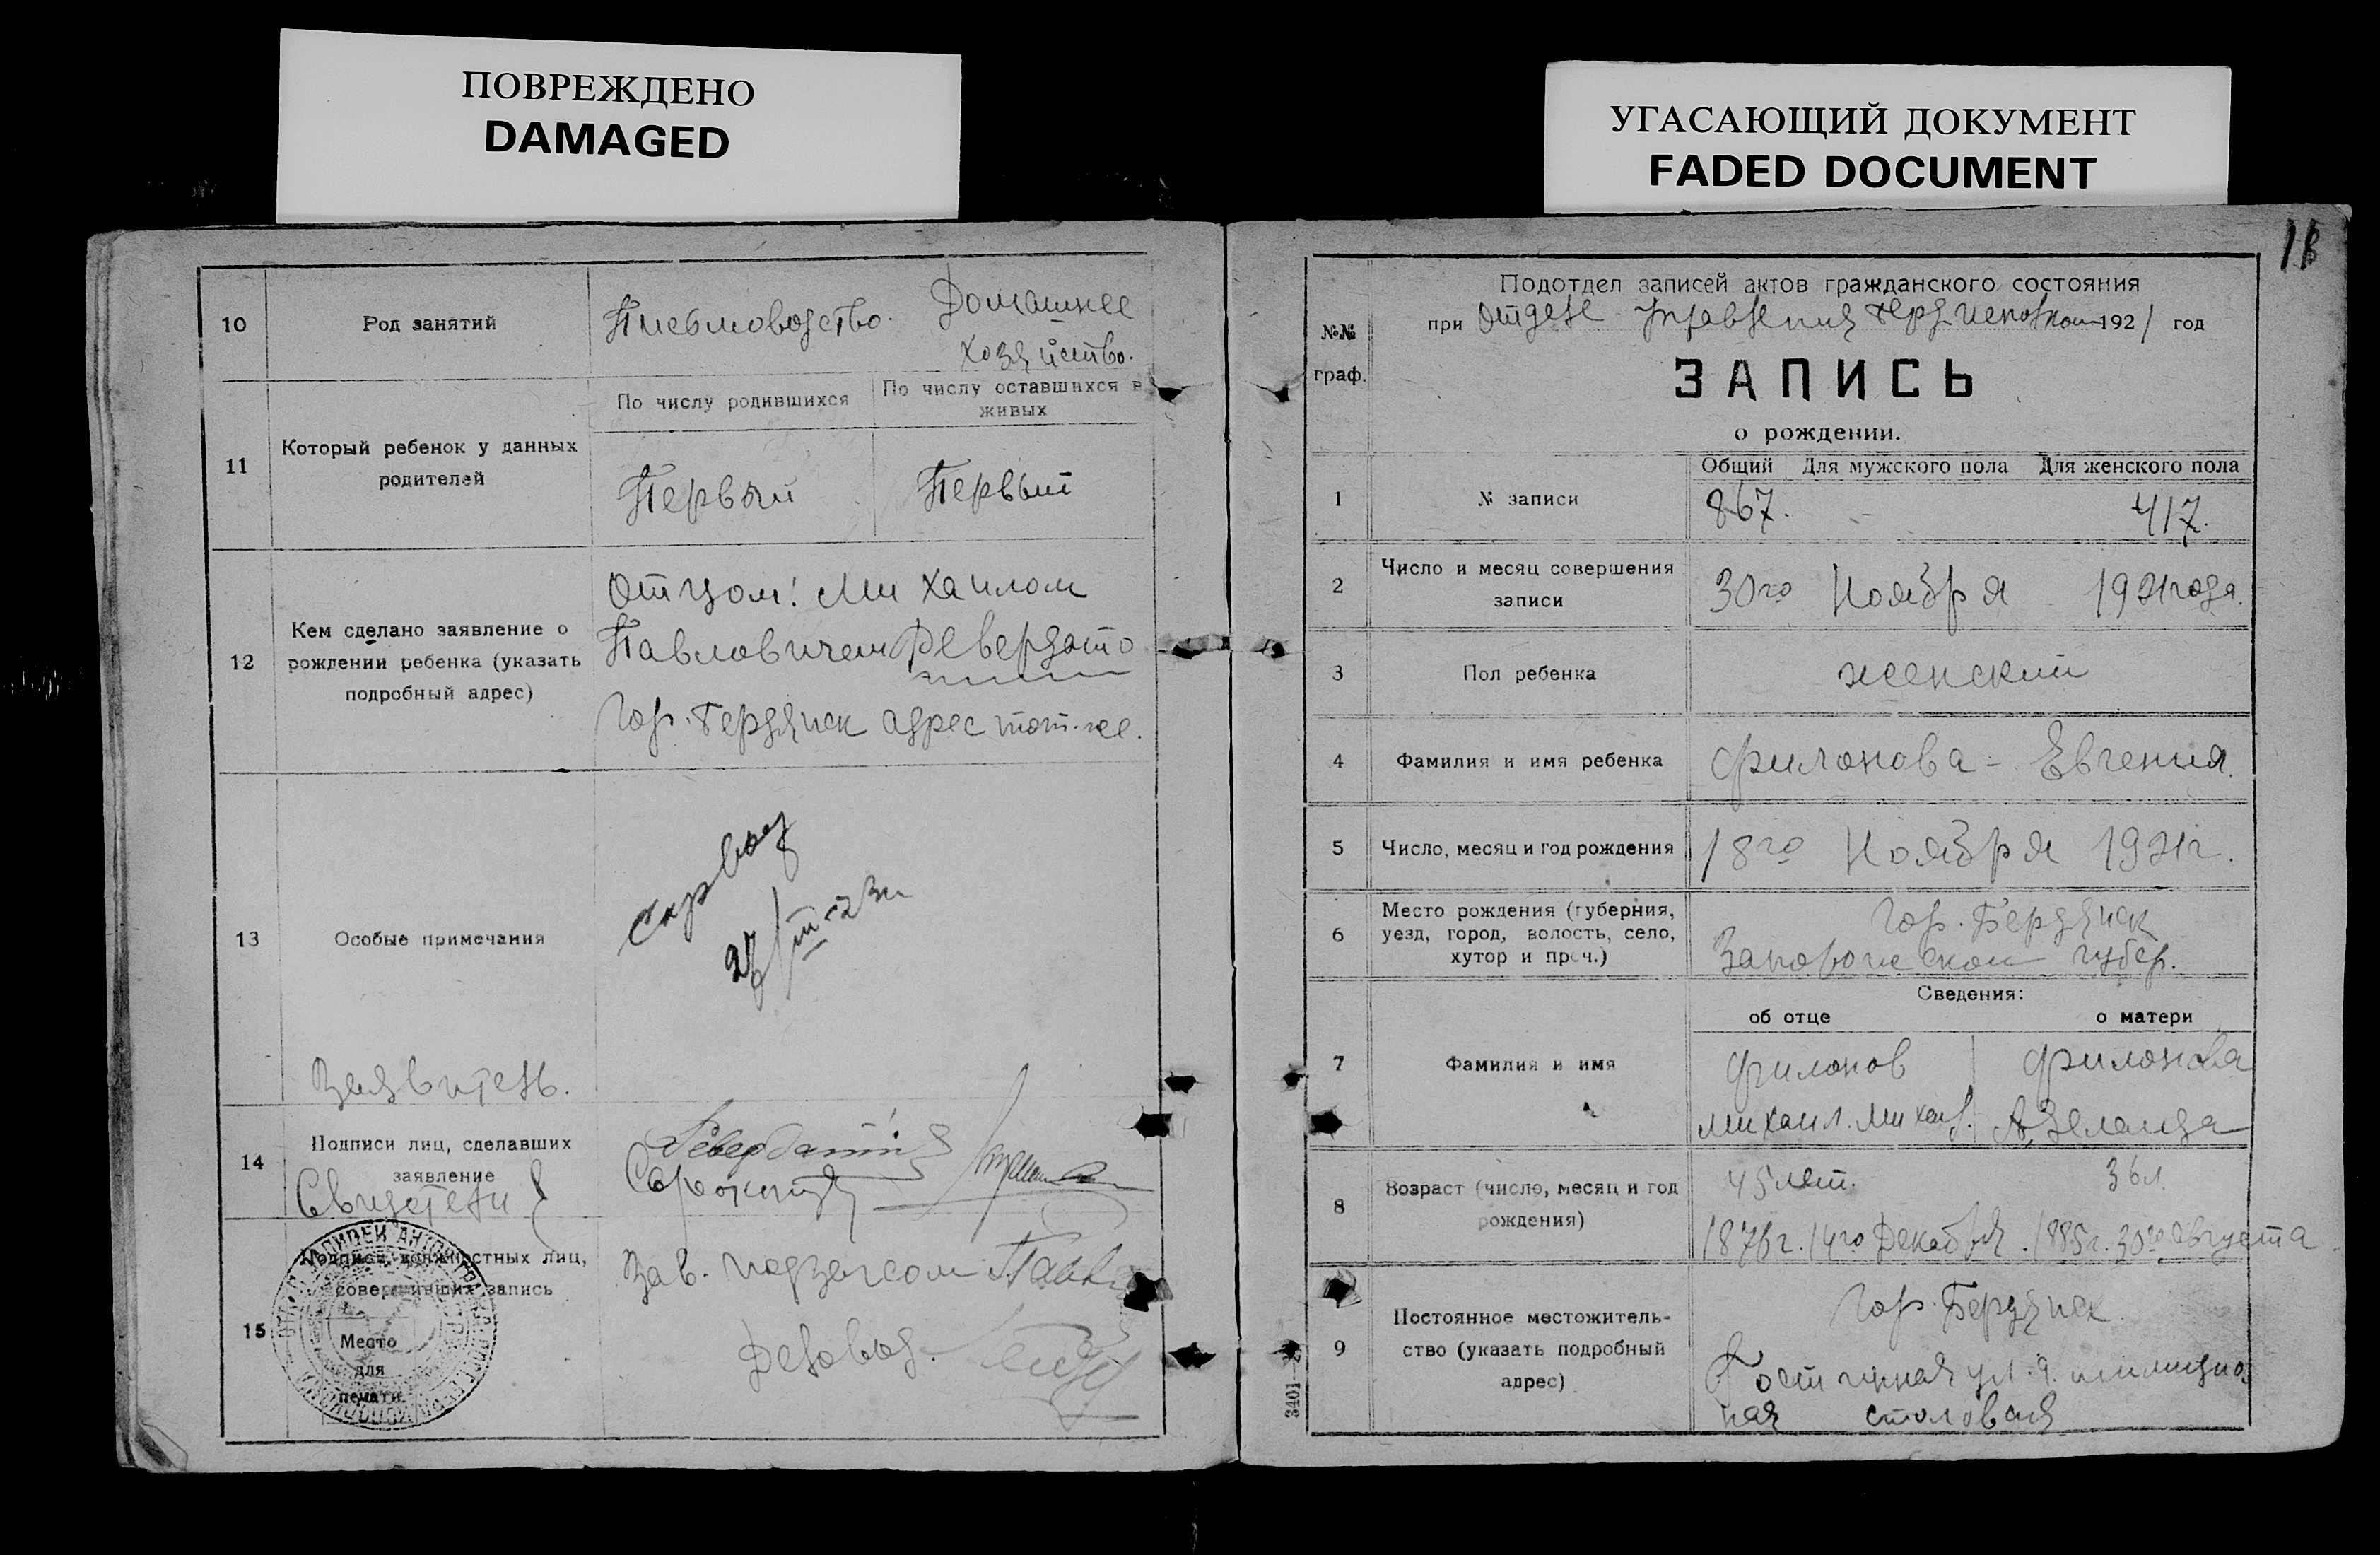 ПОВРЕЖДЕНО
DAMAGED
УГАСАЮЩИЙ ДОКУМЕНТ
FADED DOCUMENT
10
Род занятий
Письмоводство.
Домашнее
хозяйство.
11
Который ребенок у данных
родителей
По числу родившихся
По числу оставшихся в
живых
Первый
Первый
12
Кем сделано заявление о
рождении ребенка (указать
подробный адрес)
Отцом: Михаилом
Павловичем Севердато
Гор. Бердянск адрес тот-же.
13
Особые примечания
27/III-23г
Заявитель.
14
Подписи лиц, сделавших
заявление
Свидетели
15
Подписи должностных лиц,
совершивших запись
Место
для
печати.
Зав. подзагсом
Деловод.
18
№№
граф.
Подотдел записей актов гражданского состояния
при Отделе Управления Берд. Исполком 1921 год
ЗАПИСЬ
о рождении.
1
№ записи
Общий Для мужского пола Для женского пола
867. - 417.
2
Число и месяц совершения
записи
30го Ноября 1921 года.
3
Пол ребенка
женский
4
Фамилия и имя ребенка
Филонова - Евгения.
5
Число, месяц и год рождения
18го Ноября 1921г.
6
Место рождения (губерния,
уезд, город, волость, село,
хутор и проч.)
Гор. Бердянск
Запорожской губер.
Сведения:
об отце
о матери
7
Фамилия и имя
Филонов
Михаил. Михаил.
Филонова
Аделаида
8
Возраст (число, месяц и год
рождения)
45 лет.
36 л.
1876г. 14го Декабря.
1885г. 30го Августа
9
Постоянное местожитель-
ство (указать подробный
адрес)
Гор. Бердянск.
Гостинная ул. 9. милицио
ная столовая
3401—2